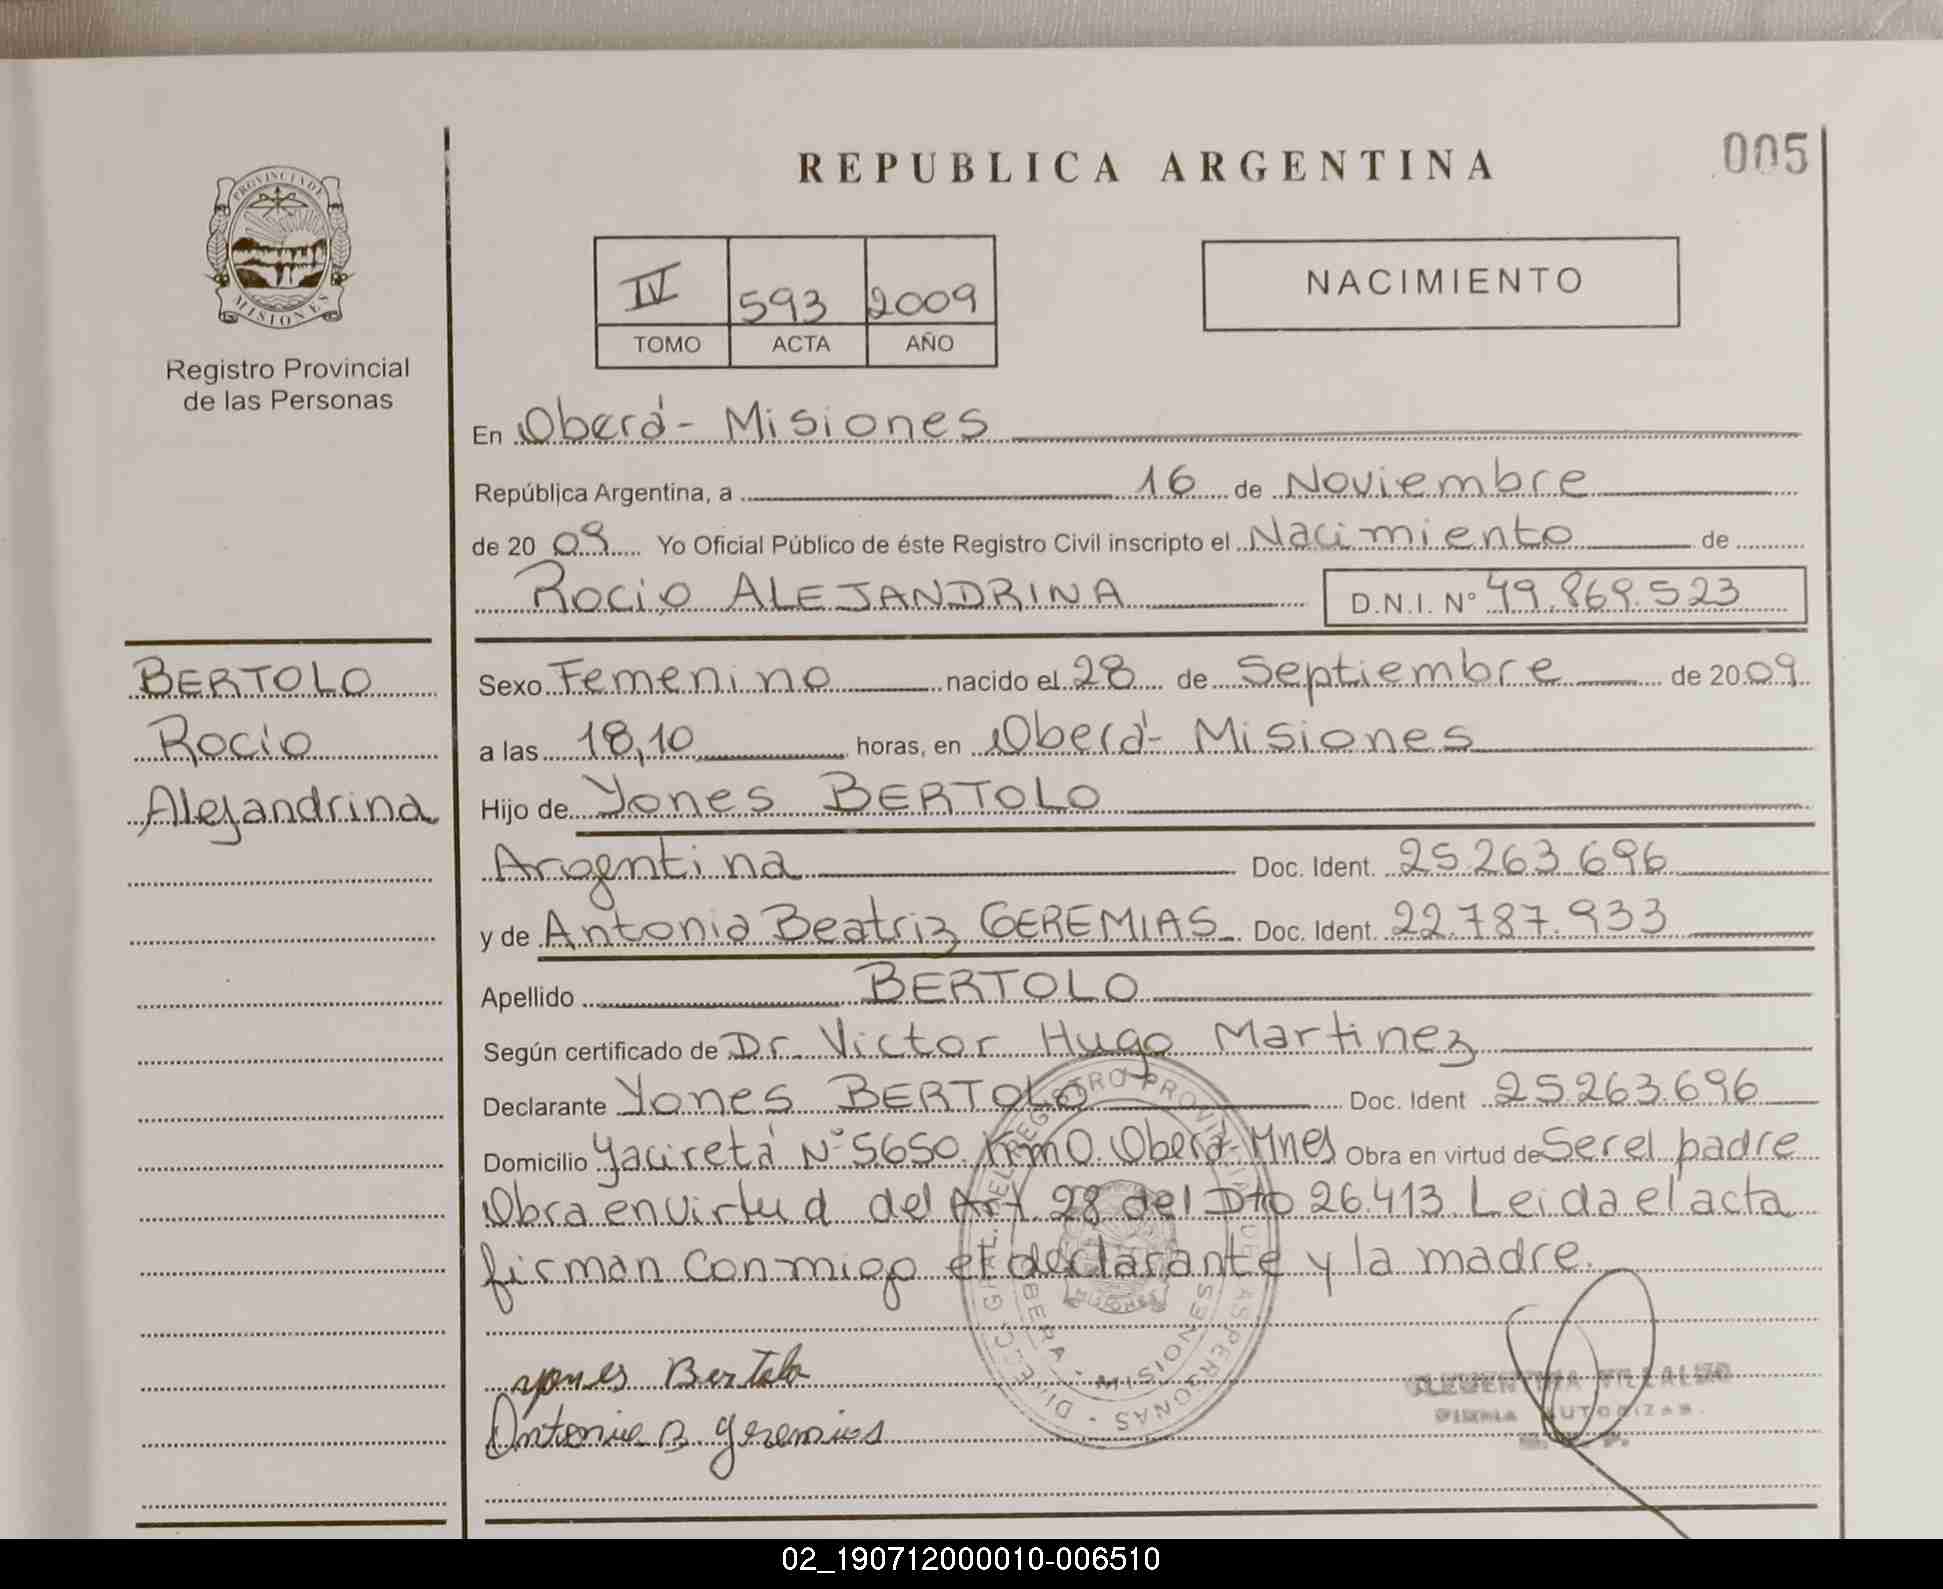 REPUBLICA ARGENTINA
005
PROVINCIA DE
MISIONES
Registro Provincial
de las Personas
IV 593 2009
TOMO ACTA AÑO
NACIMIENTO
En Oberá - Misiones
República Argentina, a 16 de Noviembre
de 20 09 Yo Oficial Público de éste Registro Civil inscripto el Nacimiento de
Rocio ALEJANDRINA D.N.I. Nº 49.869.523
BERTOLO
Rocio
Alejandrina
Sexo Femenino nacido el 28 de Septiembre de 2009
a las 18,10 horas, en Oberá - Misiones
Hijo de Yones BERTOLO
Argentina Doc. Ident. 25.263.696
y de Antonia Beatriz GEREMIAS Doc. Ident. 22.787.933
Apellido BERTOLO
Según certificado de Dr. Victor Hugo Martinez
Declarante Yones BERTOLO Doc. Ident 25.263.696
Domicilio Yaciretá Nº 5650. Km 0. Oberá Mnes Obra en virtud de Ser el padre
Obra en virtud del Art. 28 del Dto 26.413. Leida el acta
firman conmigo el declarante y la madre.
Yones Bertolo
Antonia B Geremias
MISIONES
02_190712000010-006510